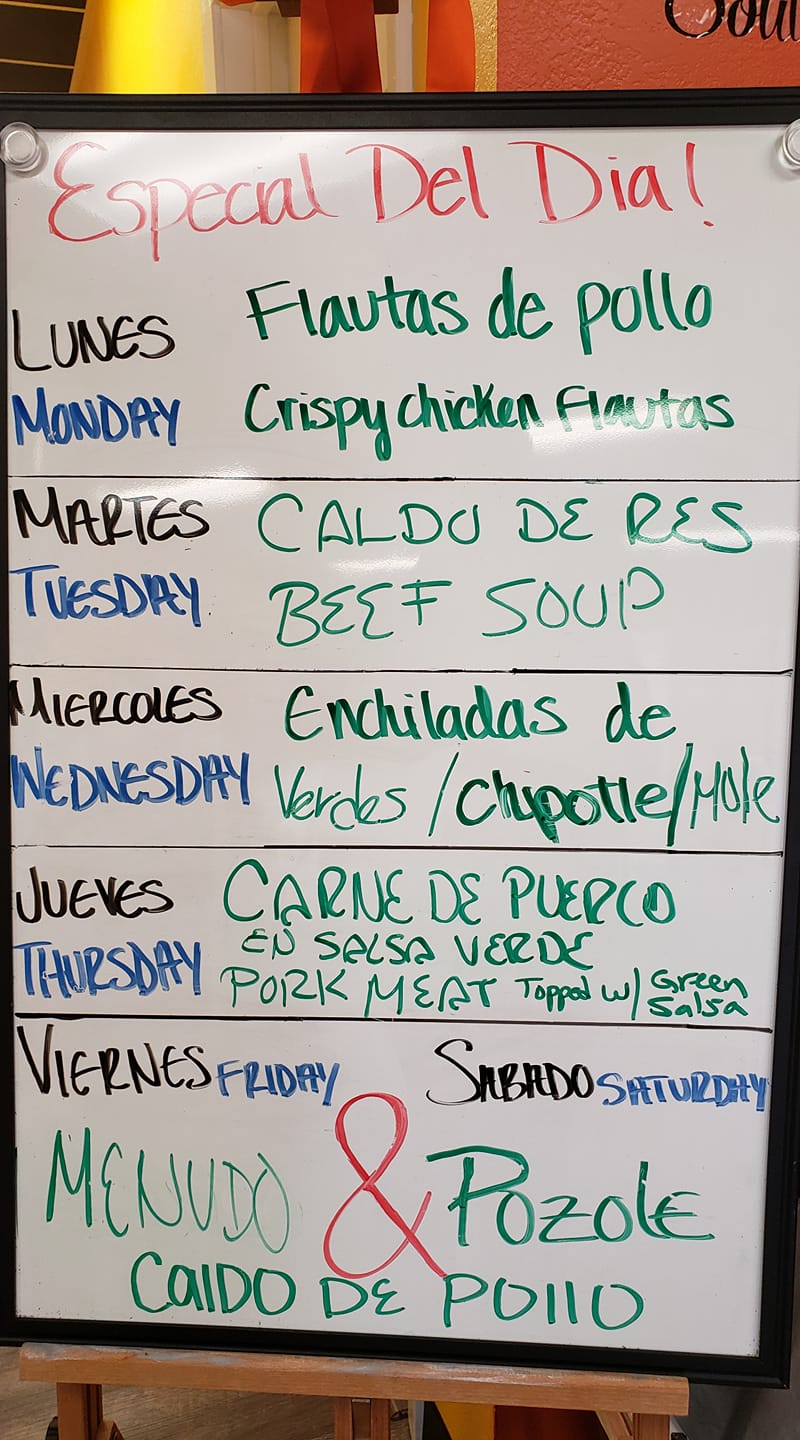 Especial Del Dia!
LUNES
Flautas de pollo
MONDAY
Crispy chicken Flautas
MARTES
CALDO DE RES
TUESDAY
BEEF SOUP
MIERCOLES
Enchiladas de
WEDNESDAY
Verdes / Chipotle / Mole
JUEVES
CARNE DE PUERCO
EN SALSA VERDE
THURSDAY
PORK MEAT Topped w/ Green Salsa
VIERNES FRIDAY
SABADO SATURDAY
MENUDO & POZOLE
CALDO DE POLLO